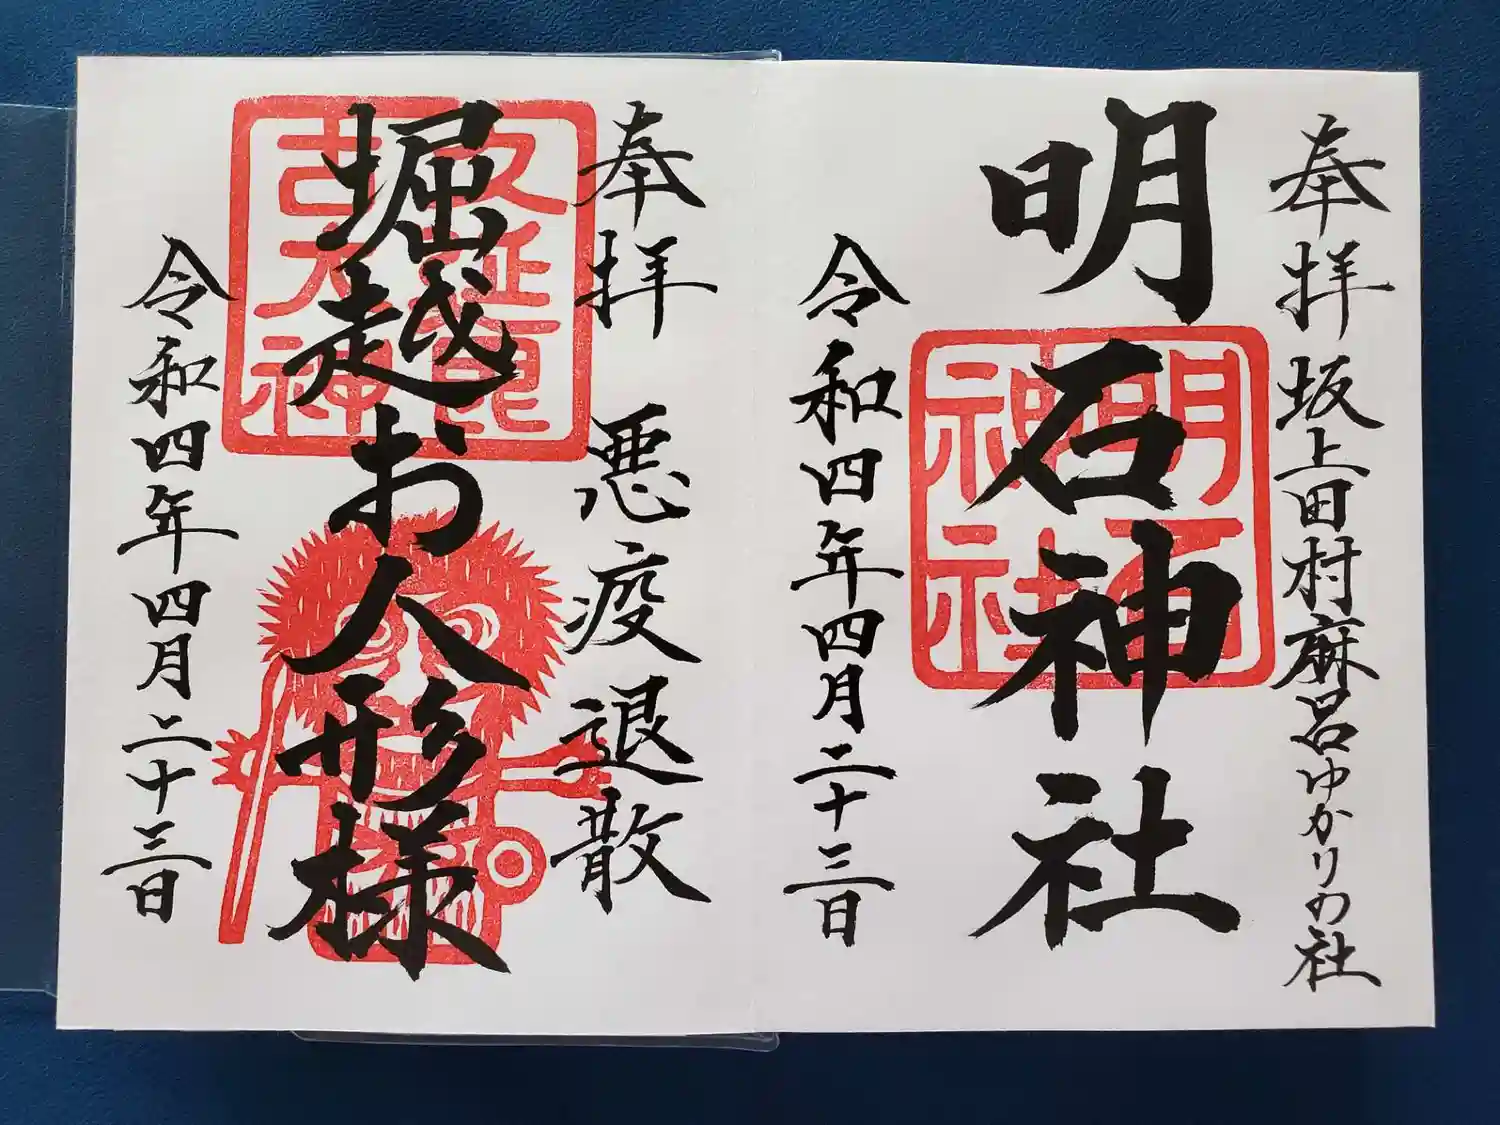 奉拝 坂上田村麻呂ゆかりの社
明石神社
明石神社
令和四年四月二十三日
奉拝 悪疫退散
堀越お人形様
令和四年四月二十三日